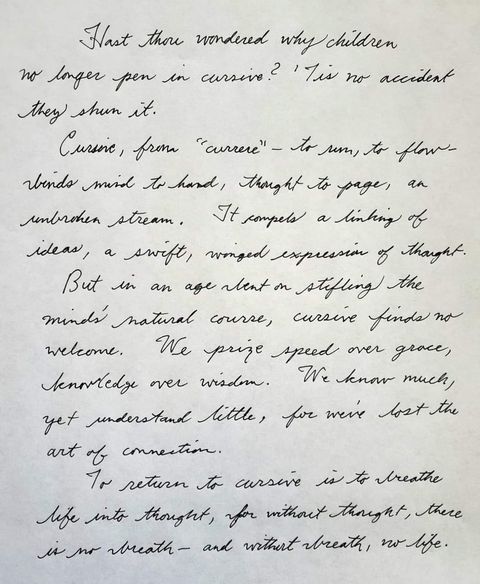 Hast thou wondered why children
no longer pen in cursive? 'Tis no accident
they shun it.
Cursive, from "currere" – to run, to flow –
binds mind to hand, thought to page, an
unbroken stream. It compels a linking of
ideas, a swift, winged expression of thought.
But in an age bent on stifling the
minds' natural course, cursive finds no
welcome. We prize speed over grace,
knowledge over wisdom. We know much,
yet understand little, for we've lost the
art of connection.
To return to cursive is to breathe
life into thought, for without thought, there
is no breath – and without breath, no life.